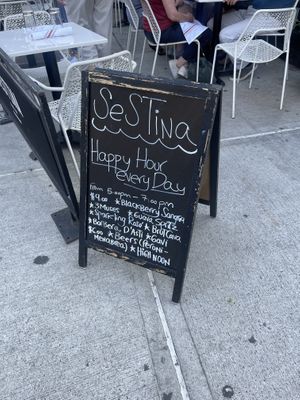 SeSTina
Happy Hour
every Day
From 5:00pm - 7:00pm
$9.00 ★BlackBerry Sangria
★3 Muses ★Guava Spritz
★Sparkling Rosé ★Brut Cava
★Barbera D'Asti ★Gavi
$6.00 ★Beers (Peroni -
Menabrea) ★HIGH NOON